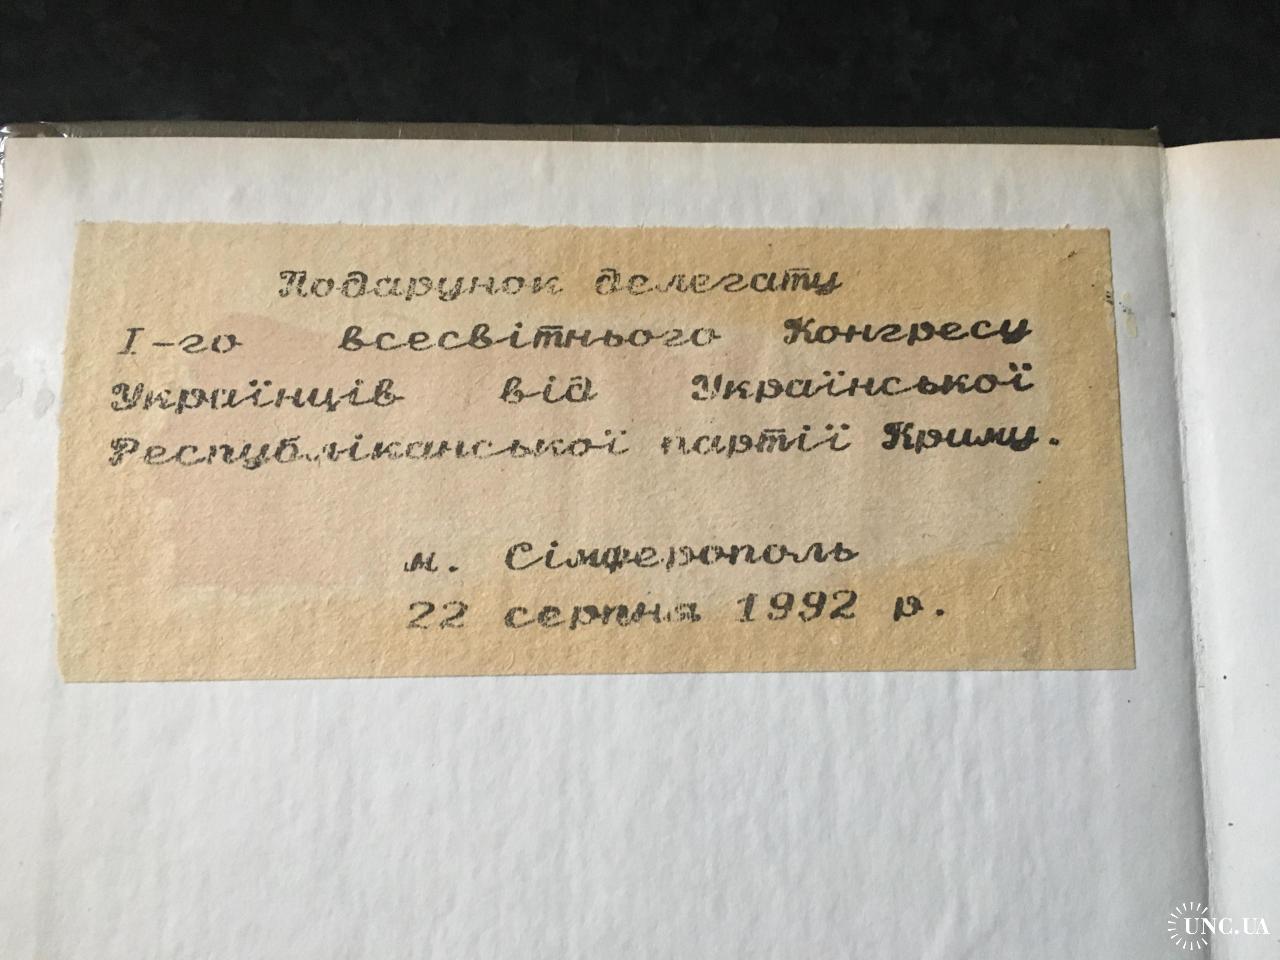 Подарунок делегату
І-го всесвітнього Конгресу
Українців від Української
Республіканської партії Криму.
м. Сімферополь
22 серпня 1992 р.
UNC.UA